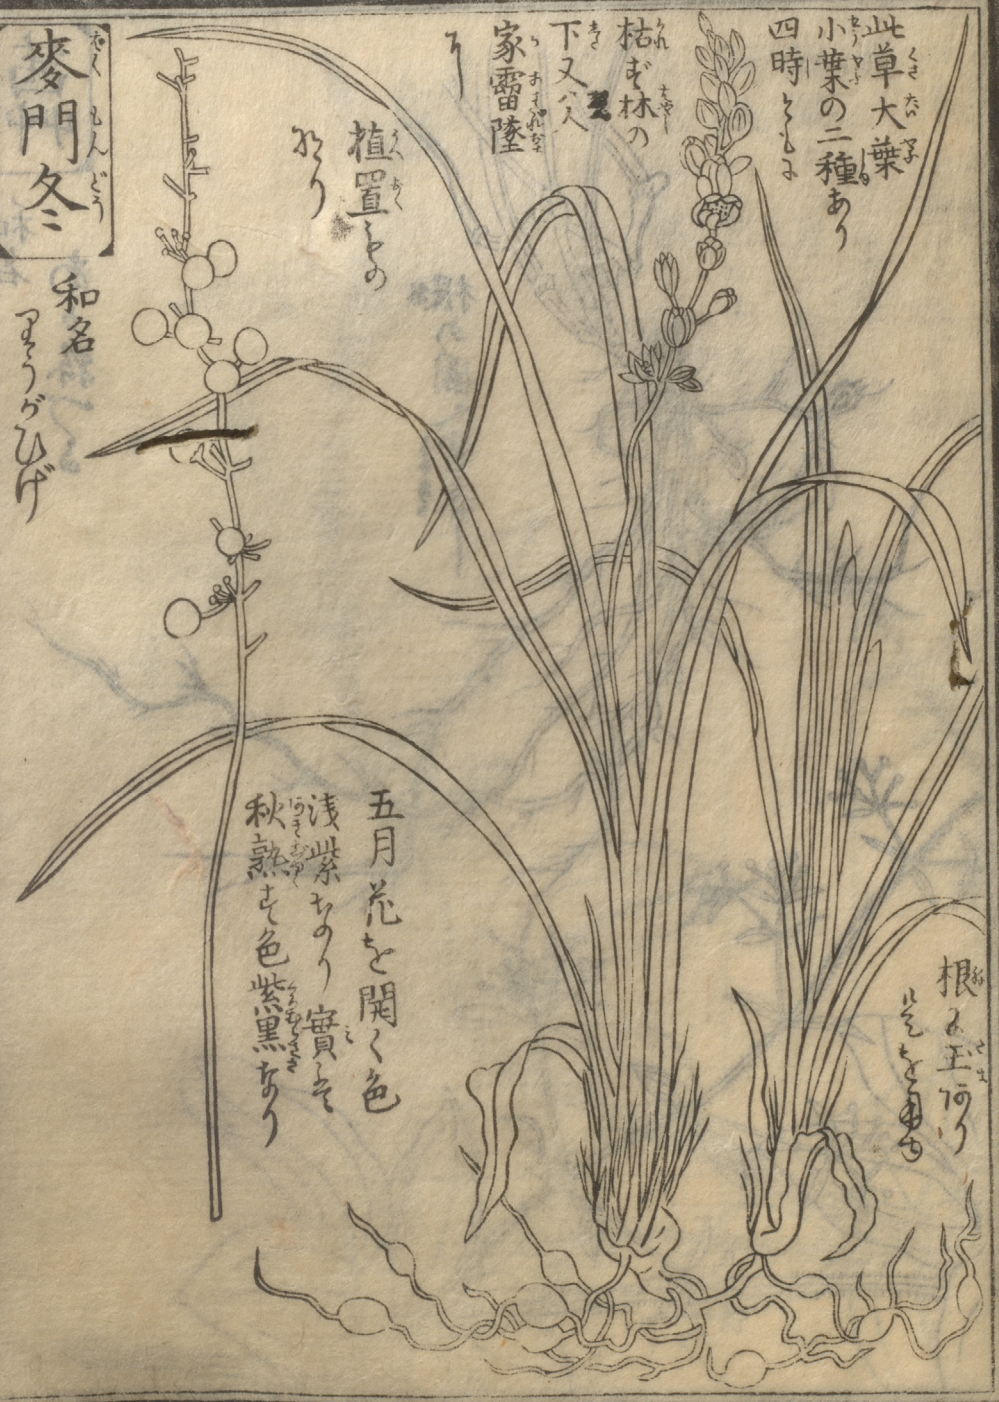 麥門冬
ばくもんどう
和名
りうがひげ
此草大葉
小葉の二種あり
四時ともに
枯ず林の
下又ハ人
家雷墜
に
植置もの
なり
五月花を開く色
浅紫なり實は
秋熟す色紫黒なり
根に玉あり
是を用ゆ